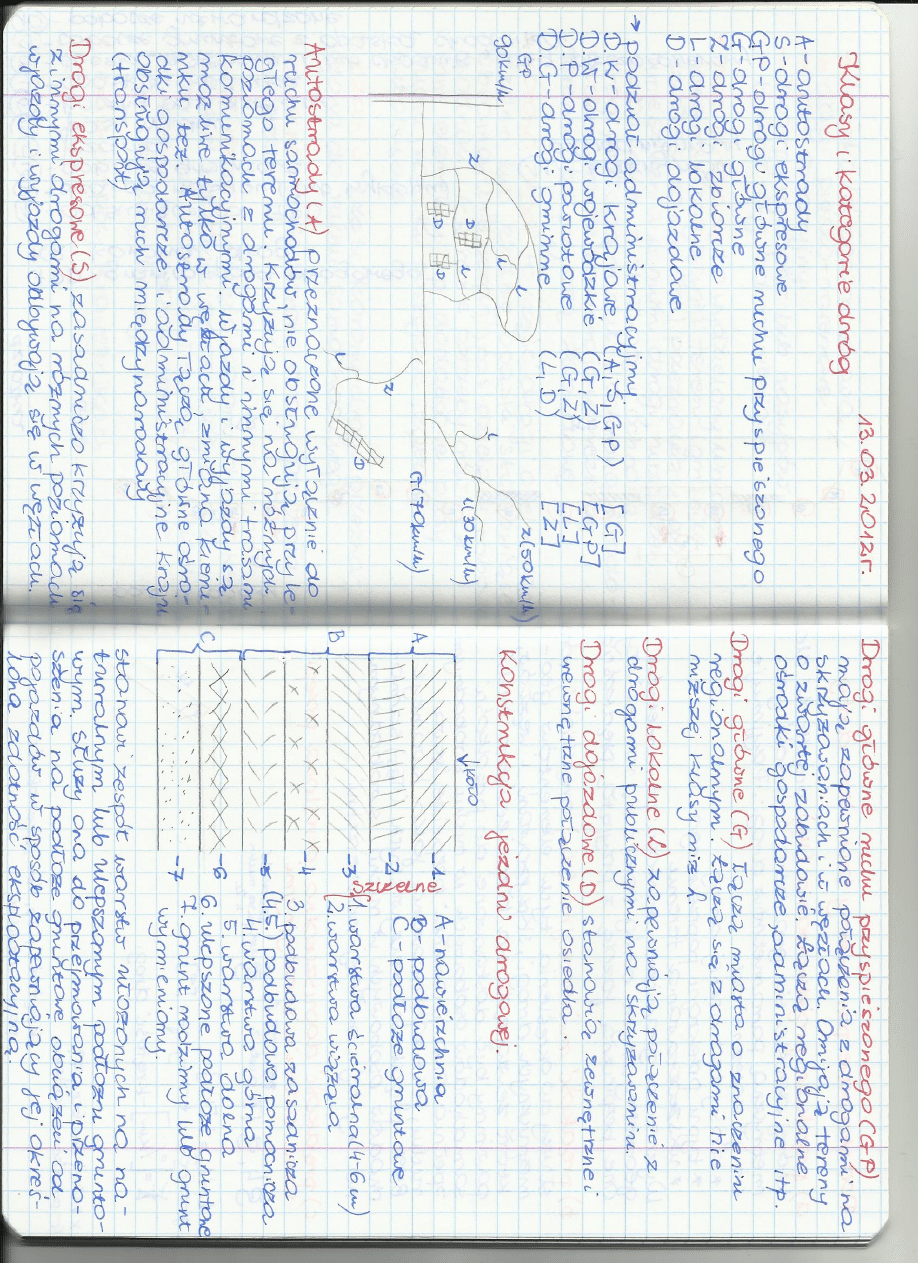 Klasy i kategorie dróg 13.03.2012r.
A - autostrady
S - drogi ekspresowe
GP - drogi główne ruchu przyspieszonego
G - drogi główne
Z - drogi zbiorcze
L - drogi lokalne
D - drogi dojazdowe
→ podział administracyjny
D.K - drogi krajowe (A, S, GP) [G]
D.W - drogi wojewódzkie (G, Z) [GP]
D.P - drogi powiatowe (G, Z) [L]
D.G - drogi gminne (L, D) [Z]
GP
90km/h
Z
L
L
D
D
L
D
L
Z
D
L
Z(50km/h)
L(30km/h)
G(70km/h)
Autostrady (A) przeznaczone wyłącznie do
ruchu samochodów, nie obsługują przyle-
głego terenu. Krzyżują się na różnych
poziomach z drogami i innymi trasami
komunikacyjnymi. Wjazdy i wyjazdy są
możliwe tylko w węzłach, zmiana kieru-
nku też. Autostrady łączą główne ośro-
dki gospodarcze i administracyjne kraju
obsługują ruch międzynarodowy
(transport)
Drogi ekspresowe (S) zasadniczo krzyżują się
z innymi drogami na różnych poziomach
wjazdy i wyjazdy odbywają się w węzłach.
Drogi główne ruchu przyspieszonego (GP)
mają zapewnione połączenia z drogami na
skrzyżowaniach i w węzłach. Omijają tereny
o zwartej zabudowie. Łączą regionalne
ośrodki gospodarcze, administracyjne itp.
Drogi główne (G) łączą miasta o znaczeniu
regionalnym. Łączą się z drogami nie
niższej klasy niż L.
Drogi lokalne (L) zapewniają połączenie z
drogami publicznymi na skrzyżowaniu.
Drogi dojazdowe (D) stanowią zewnętrzne i
wewnętrzne połączenie osiedla.
Konstrukcja jezdni drogowej.
↓ koło
A
B
C
-1
-2
-3
-4
-5
-6
-7
szczelne
A - nawierzchnia
B - podbudowa
C - podłoże gruntowe
1. warstwa ścieralna (4-6cm)
2. warstwa wiążąca
3. podbudowa zasadnicza
(4,5) podbudowa pomocnicza
4. warstwa górna
5. warstwa dolna
6. ulepszone podłoże gruntowe
7. grunt rodzimy lub grunt
wymieniony.
Stanowi zespół warstw ułożonych na na-
turalnym lub ulepszonym podłożu grunto-
wym. Służy ona do przejmowania i przeno-
szenia na podłoże gruntowe obciążeń od
pojazdów w sposób zapewniający jej okreś-
loną zdatność eksploatacyjną.